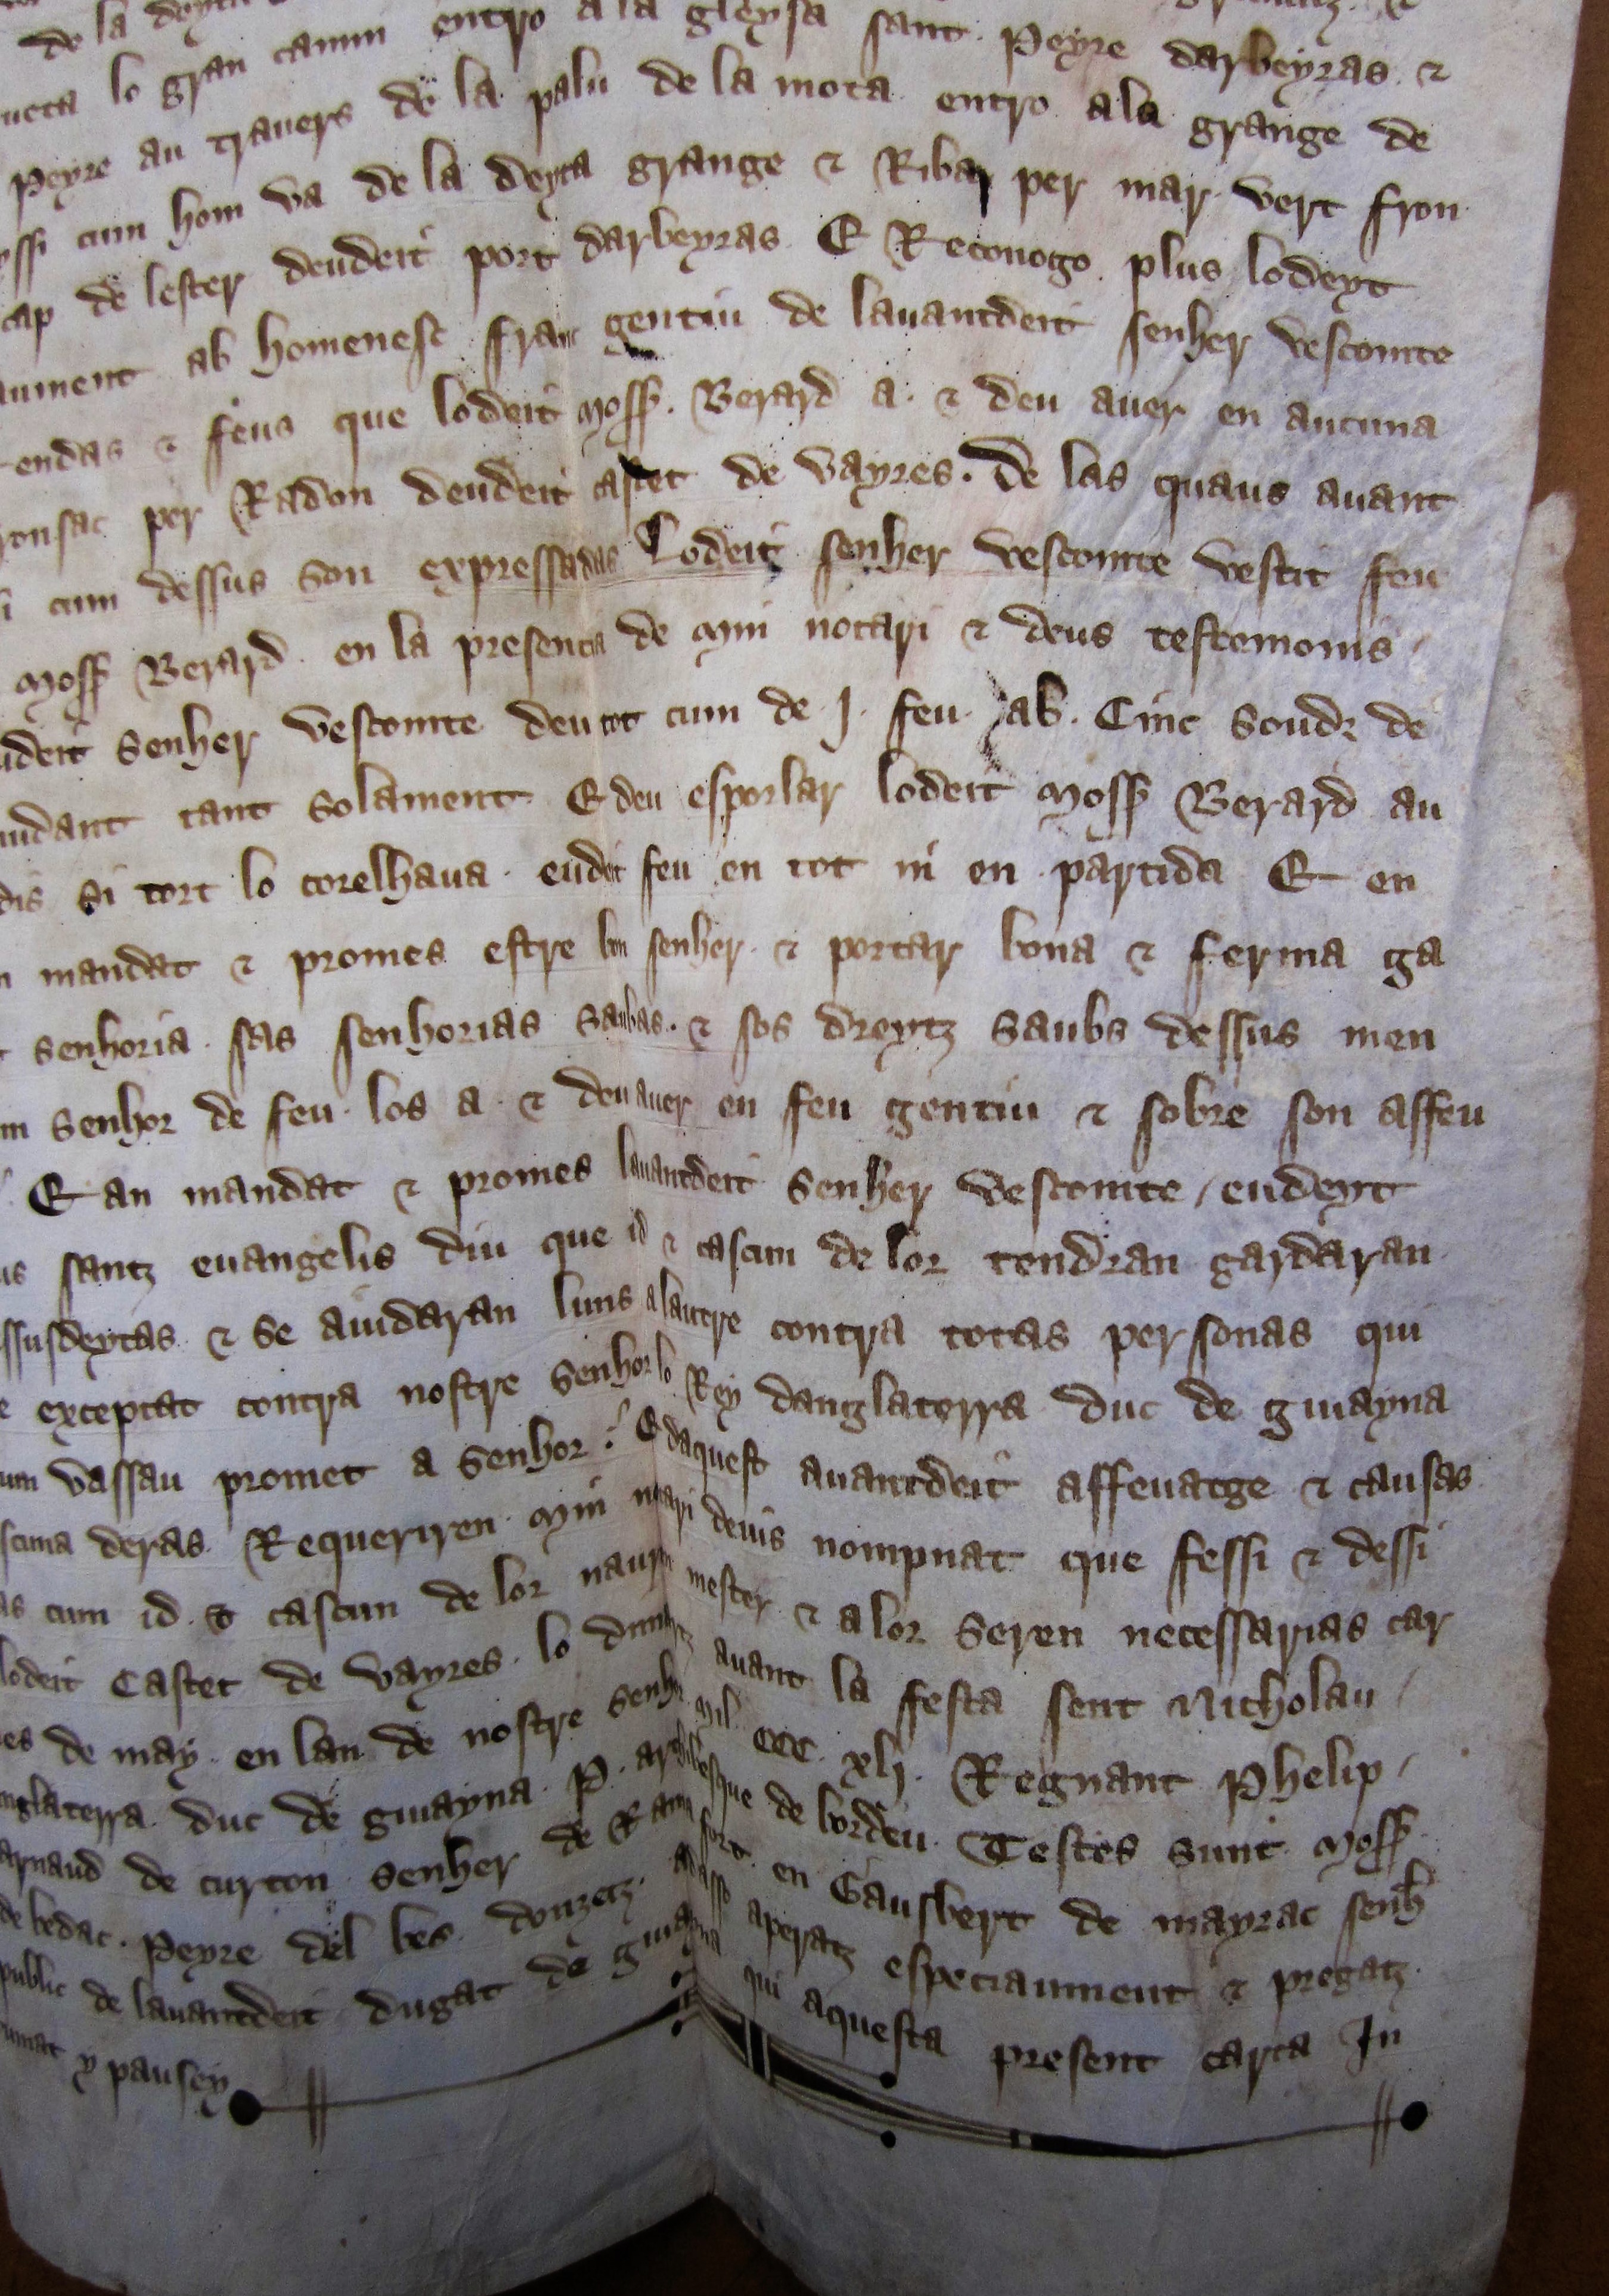 de la deyta
lo gran camin entro a la gleysa sant Peyre darbeyras &
Peyre au travers de la palu de la mota entro ala grange de
cum hom va de la deyta grange & Ribar per mar vert fron
cap de lester deudeit port darbeyras E Reconogo plus lodeyt
ab homenesc franc gentiu de lavantdeit senher vescomte
endas & feus que lodeit Moss. Berard a. & deu aver en aucuna
per Radon deudeit castet de vayres. De las quaus avant
cum dessus son expressadas Lodeit senher vescomte vestit feu
Moss Berard en la presencia de Min notari & deus testemonis
senher vescomte deu tot cum de .j. feu ab. Cinc soudz de
tant solament E deu esporlar lodeit Moss Berard au
si tort lo torelhava eudeit feu en tot ni en partida E en
mandat & promes estre bon senher & portar bona & ferma ga
senhoria sas senhorias saubas. & sos dreytz saubs dessus men
senhor de feu los a & deu aver en feu gentiu & sobre son affeu
E an mandat & promes lavantdeit senher vescomte / eudeyt
santz evangelis diu que id & cascun de lor tendran gardaran
& se aiudaran luns a lautre contra totas personas qui
exceptat contra nostre senhor lo Rey danglaterra duc de guiayna
vassau promet a senhor : E daquest avantdeit affevatge & causas
deras Requeriren Min notari devis nompnat que fessi & dessi
cum id & cascun de lor mester & a lor seren necessarias car
lodeit Castet de vayres. lo avant la festa sent Nicholau /
de may en lan de nostre senhor Mil CCC. xlj. Regnant Phelip /
duc de guiayna P. archibesque de bordeu Testes sunt Moss
arnaud de curton senher de Ramafort en Gausbert de mayrac senh
de bedac. Peyre del bes aperatz especiaument & pregatz
public de lavantdeit dugat de guiayna qui aquesta present carta In
y pausey